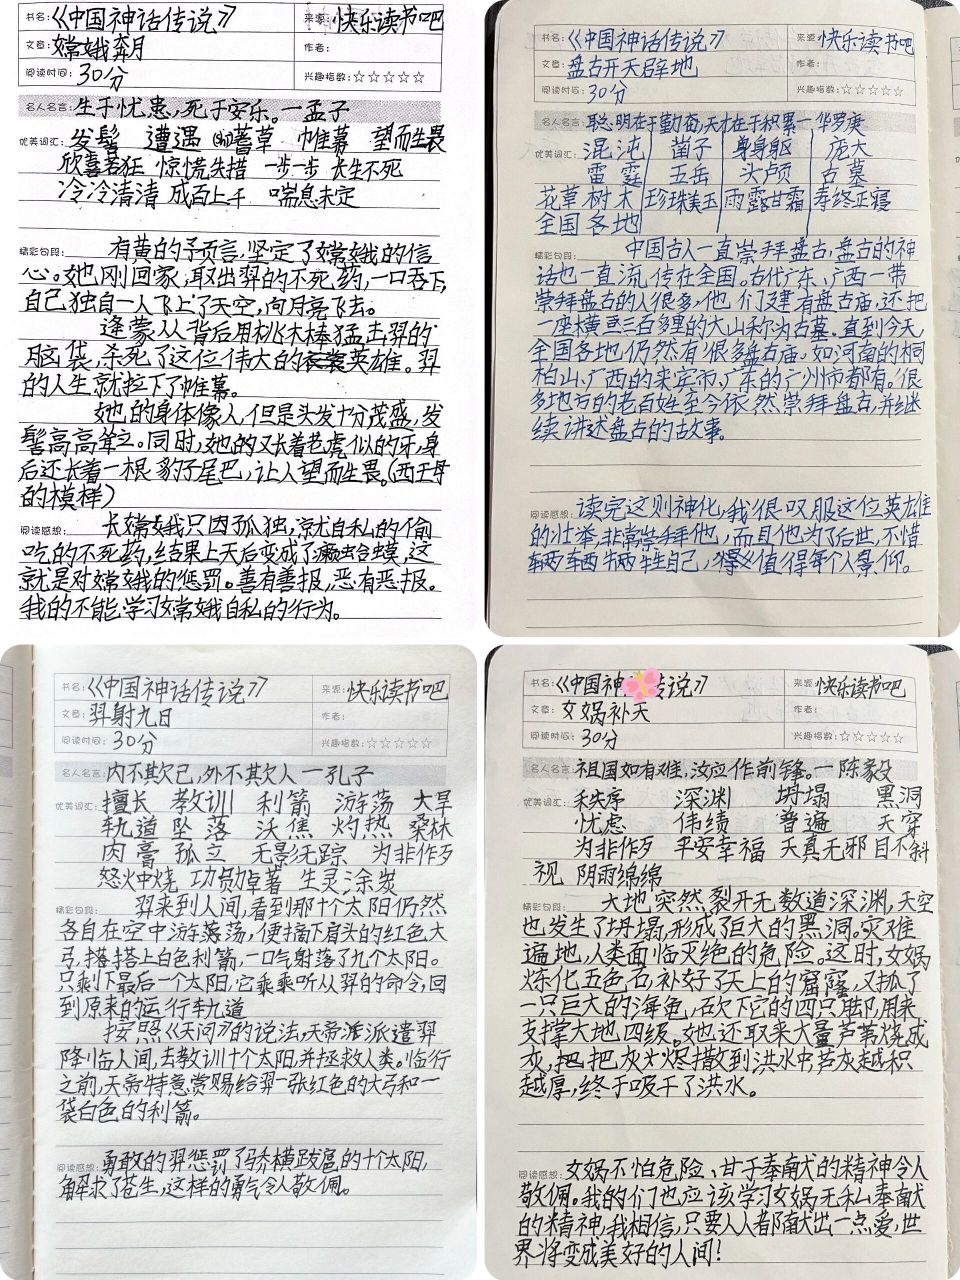 书名:《中国神话传说》 来源:快乐读书吧
文章:嫦娥奔月 作者:
阅读时间:30分 兴趣指数:☆☆☆☆☆
名人名言:生于忧患,死于安乐。一孟子
优美词汇:发髻 遭遇 蓍草 帷幕 望而生畏
欣喜若狂 惊慌失措 一步一步 长生不死
冷冷清清 成百上千 喘息未定
精彩句段: 有黄的予页言,坚定了嫦娥的信
心。她刚回家,取出羿的不死药,一口吞下,
自己独自一人飞上了天空,向月亮飞去。
逢蒙从背后用桃木棒猛击羿的
脑袋,杀死了这位伟大的英雄。羿
的人生就拉下了帷幕。
她的身体像人,但是头发十分茂盛,发
髻高高耸立。同时,她的又长着老虎似的牙,身
后还长着一根豹子尾巴,让人望而生畏。(西王母
的模样)
阅读感想: 长嫦娥只因孤独,就自私的偷
吃的不死药,结果上天后变成了癞蛤蟆,这
就是对嫦娥的惩罚。善有善报,恶有恶报。
我的不能学习嫦娥自私的行为。
书名:《中国神话传说》 来源:快乐读书吧
文章:盘古开天辟地 作者:
阅读时间:30分 兴趣指数:☆☆☆☆☆
名人名言:聪明在于勤奋,天才在于积累一华罗庚
优美词汇:混沌 苗子 身躯 庞大
雷霆 五岳 头颅 古墓
花草树木 珍珠美玉 雨露甘霜 寿终正寝
全国各地
精彩句段: 中国古人一直崇拜盘古,盘古的神
话也一直流传在全国。古代广东、广西一带
崇拜盘古的人很多,他们建有盘古庙,还把
一座横亘三百多里的大山称为古墓。直到今天,
全国各地仍然有很多盘古庙。如河南的桐
柏山、广西的来宾市、广东的广州市都有。很
多地方的老百姓至今依然崇拜盘古,并继
续讲述盘古的古故事。
阅读感想: 读完这则神化,我很叹服这位英雄
的壮举,非常崇拜他,而且他为了后世,不惜
牺牲自己,值得每个人景仰。
书名:《中国神话传说》 来源:快乐读书吧
文章:羿射九日 作者:
阅读时间:30分 兴趣指数:☆☆☆☆☆
名人名言:内不欺己,外不欺人一孔子
优美词汇:擅长 教训 利箭 游荡 大旱
轨道 坠落 沃焦 灼热 桑林
肉膏 孤立 无影无踪 为非作歹
怒火中烧 功勋卓著 生灵涂炭
精彩句段: 羿来到人间,看到那十个太阳仍然
各自在空中游荡,便摘下肩头的红色大
弓,搭搭上白色利箭,一口气射落了九个太阳。
只剩下最后一个太阳,它乖乖听从羿的命令,回
到原来的运行轨道
按照《天问》的说法,天帝派派遣羿
降临人间,去教训十个太阳,并拯救人类。临行
之前,天帝特意赏赐给羿一张红色的大弓和一
袋白色的利箭。
阅读感想:勇敢的羿惩罚了骄横跋扈的十个太阳,
解救了苍生,这样的勇气令人敬佩。
书名:《中国神传说》 来源:快乐读书吧
文章:女娲补天 作者:
阅读时间:30分 兴趣指数:☆☆☆☆☆
名人名言:祖国如有难,汝应作前锋。一陈毅
优美词汇:秩序 深渊 坍塌 黑洞
忧虑 伟绩 普遍 天穿
为非作歹 平安幸福 天真无邪 目不斜
视 阴雨绵绵
精彩句段: 大地突然裂开无数道深渊,天空
也发生了坍塌,形成了巨大的黑洞。灾难
遍地,人类面临灭绝的危险。这时,女娲
炼化五色石,补好了天上的窟窿,又抓了
一只巨大的海龟,砍下它的四只脚,用来
支撑大地四级。她还取来大量芦苇烧成
灰,把灰烬撒到洪水中,芦灰越积
越厚,终于吸干了洪水。
阅读感想:女娲不怕危险、甘于奉献的精神令人
敬佩。我的们也应该学习女娲无私奉献
的精神,我相信,只要人人都献出一点爱,世
界将变成美好的人间!